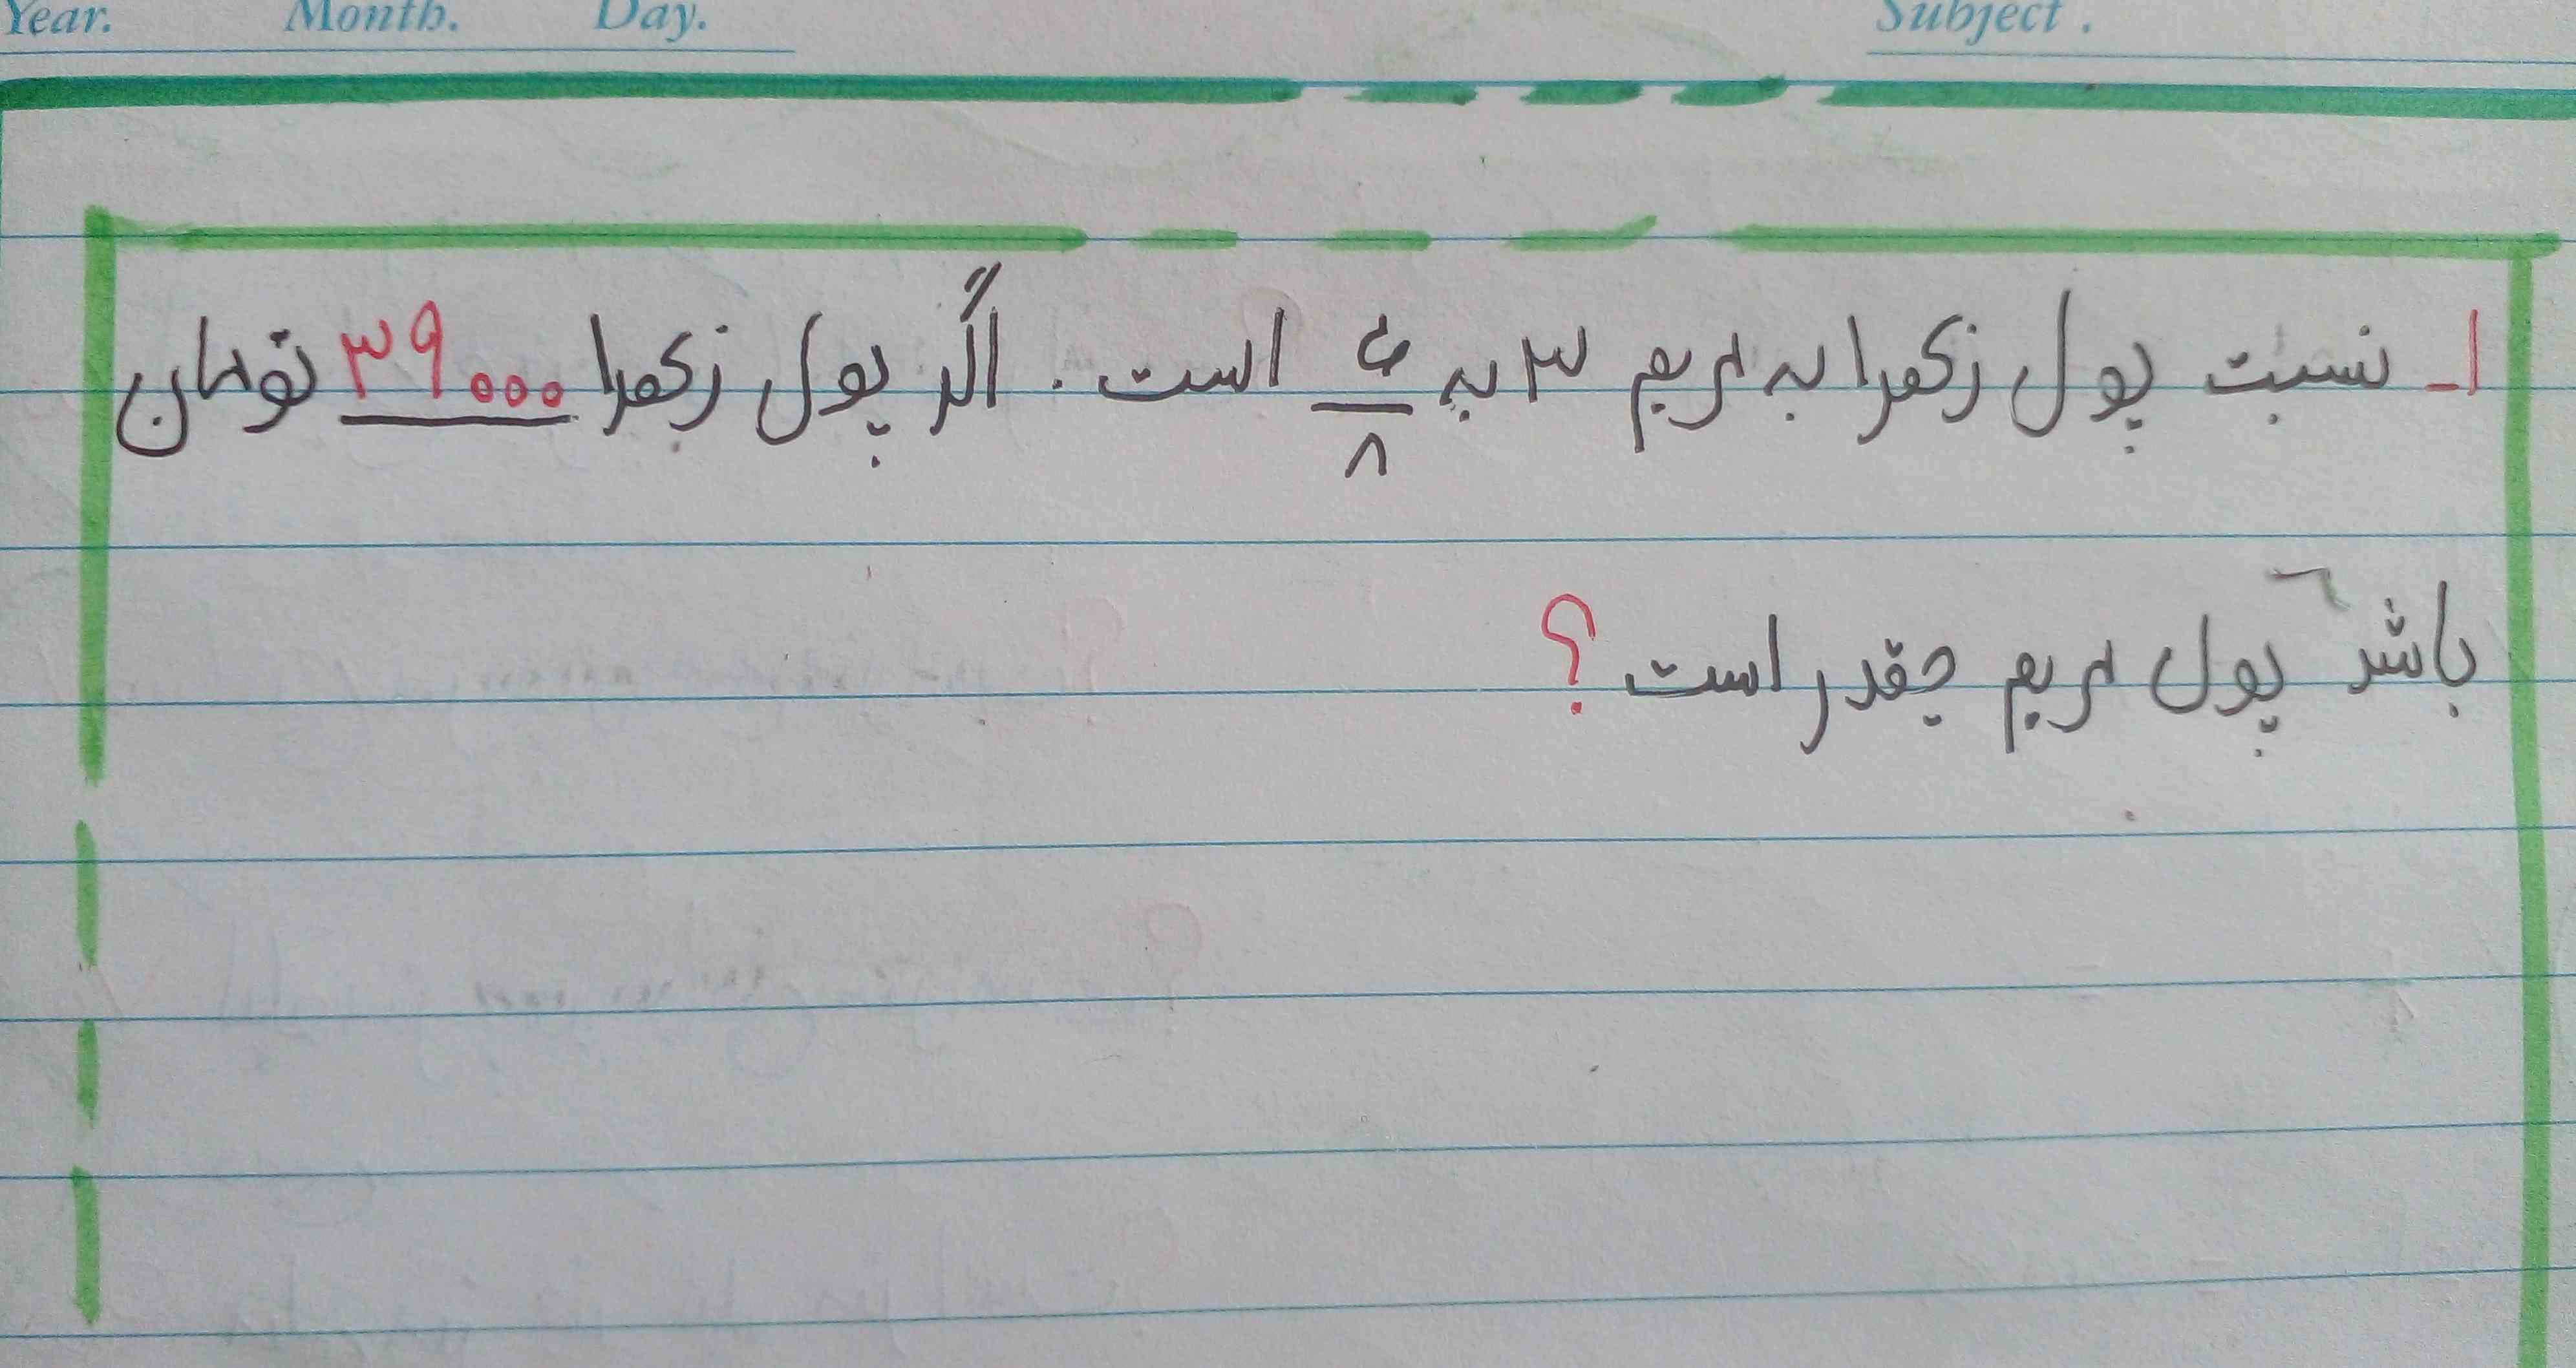 Year. Month. Day. Subject.
۱- نسبت پول زهرا به مریم ۳ به ۶/۸ است. اگر پول زهرا ۳۹۰۰۰ تومان
باشد پول مریم چقدر است؟